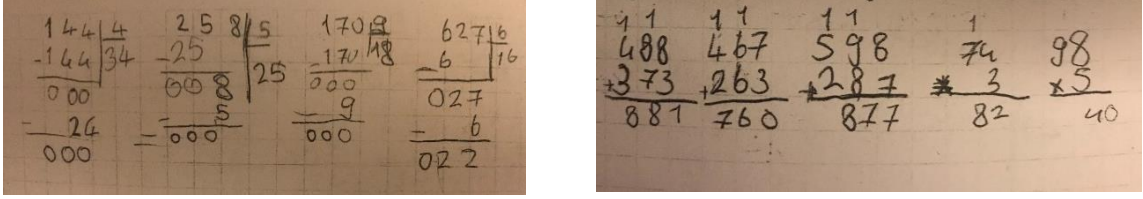 144 4
-144 34
000
- 24
000
258 5
-25 25
008
- 5
= 000
1709
-170 18
000
= 9
000
627 6
- 6 16
027
- 6
022
1 1
488
+373
881
1 1
467
+263
760
1 1
598
+287
877
1
74
* 3
82
98
x 5
40